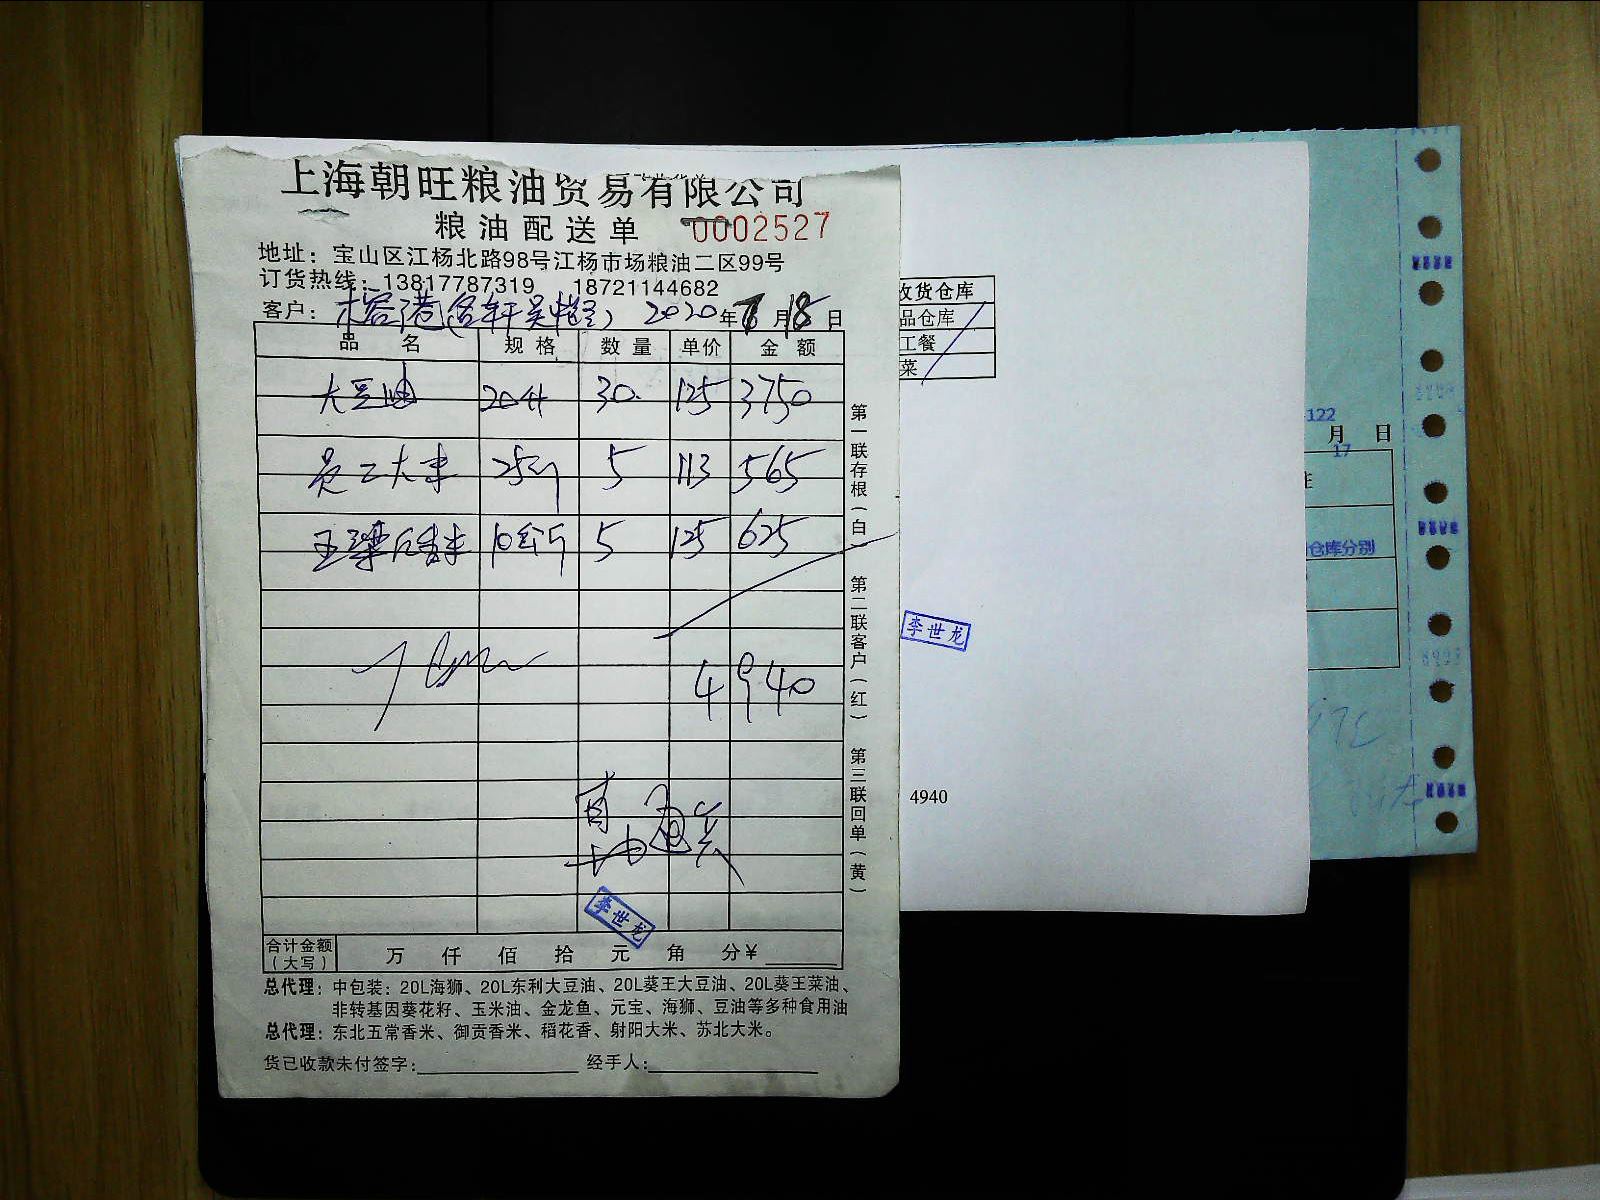 上海朝旺粮油贸易有限公司
粮油配送单 0002527
地址：宝山区江杨北路98号江杨市场粮油二区99号
订货热线：13817787319 18721144682
客户： 2020年 月18日
品名 规格 数量 单价 金额
大豆油 20升 30 125 3750
员工大米 25 5 113 565
5 125 625
4940
李世龙
合计金额（大写） 万 仟 佰 拾 元 角 分￥
总代理：中包装：20L海狮、20L东利大豆油、20L葵王大豆油、20L葵王菜油、
非转基因葵花籽、玉米油、金龙鱼、元宝、海狮、豆油等多种食用油
总代理：东北五常香米、御贡香米、稻花香、射阳大米、苏北大米。
货已收款未付签字： 经手人：
第一联存根（白） 第二联客户（红） 第三联回单（黄）
收货仓库
品仓库
工餐
菜
李世龙
4940
122
月 日
17
仓库分别